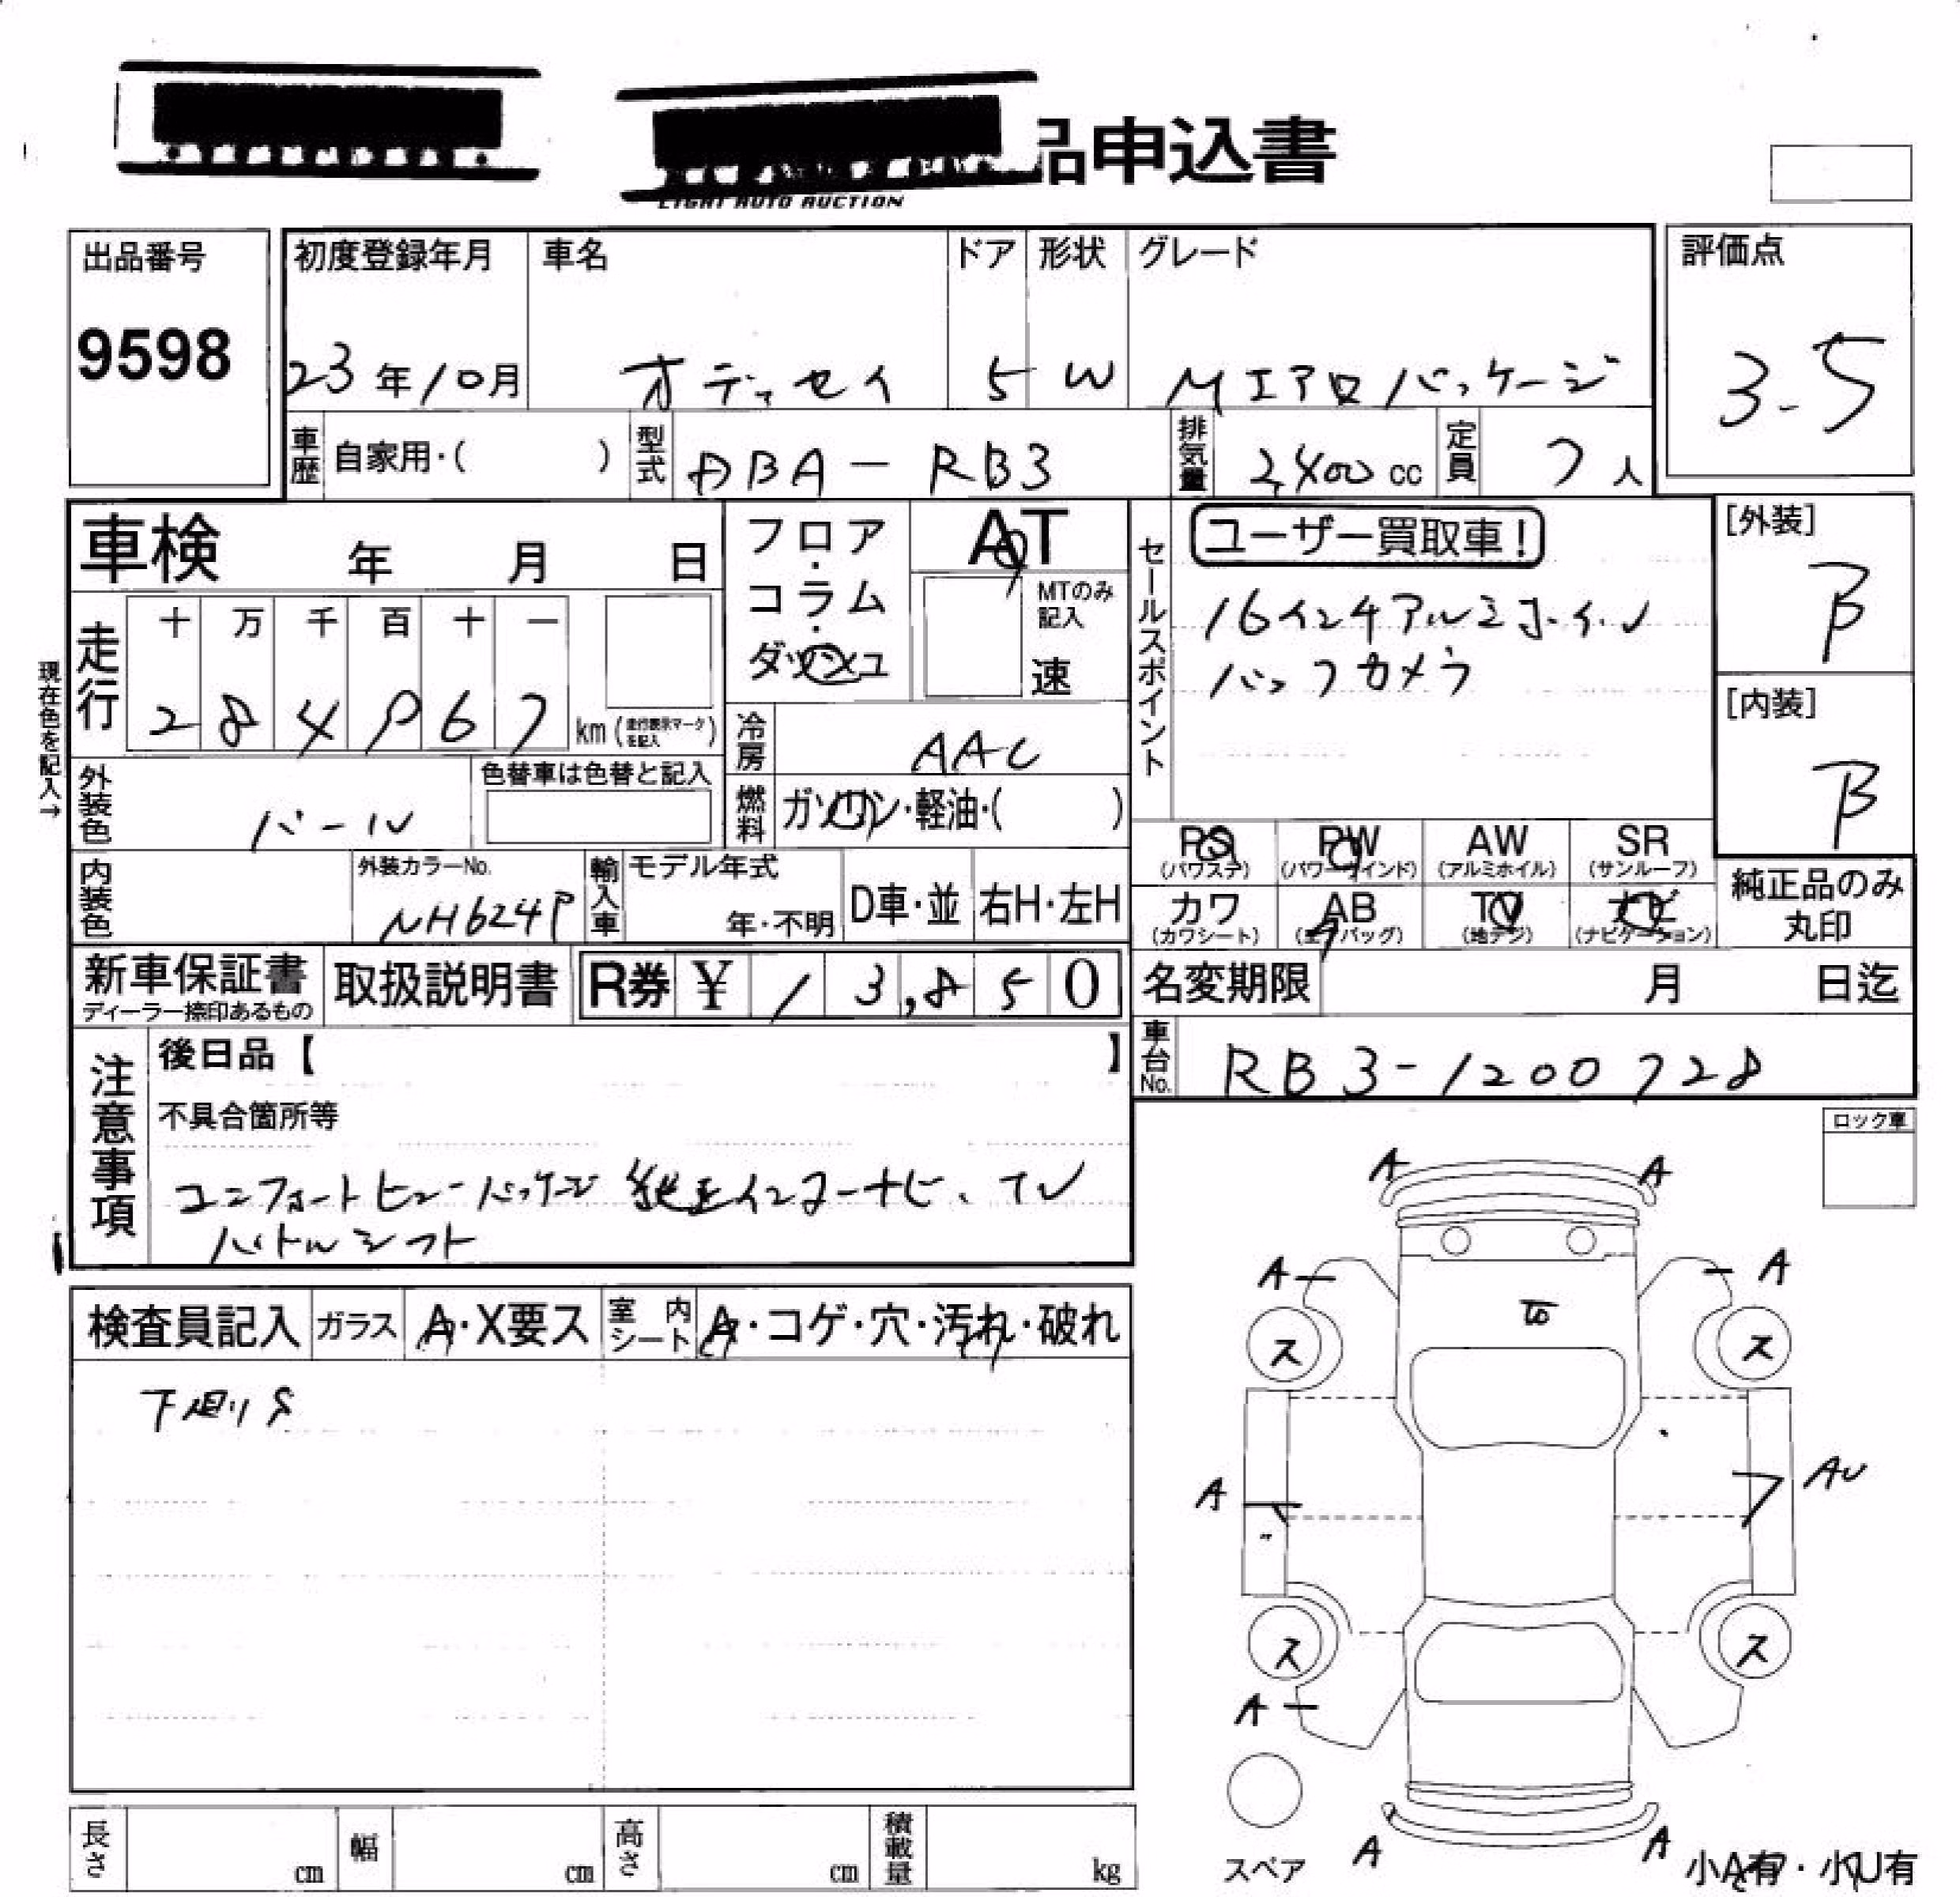 品申込書
LIGHT AUTO AUCTION
出品番号
9598
初度登録年月
23年10月
車名
オデッセイ
ドア
5
形状
W
グレード
Mエアロパッケージ
評価点
3.5
車歴
自家用・( )
型式
DBA-RB3
排気量
2,400 cc
定員
7人
車検 年 月 日
走行
十 万 千 百 十 一
2 8 4 9 6 7
km(走行表示マークを記入)
現在色を記入→
フロア・コラム・ダッシュ
AT
MTのみ記入
速
冷房
AAC
燃料
ガソリン・軽油・( )
外装色
パール
色替車は色替と記入
内装色
外装カラーNo.
NH624P
輸入車
モデル年式
年・不明
D車・並
右H・左H
セールスポイント
ユーザー買取車!
16インチアルミホイール
バックカメラ
[外装]
B
[内装]
B
PS
(パワステ)
PW
(パワーウインド)
AW
(アルミホイル)
SR
(サンルーフ)
カワ
(カワシート)
AB
(エアバッグ)
TV
(地デジ)
ナビ
(ナビゲーション)
純正品のみ
丸印
新車保証書
ディーラー捺印あるもの
取扱説明書
R券 ¥ 13,850
名変期限 月 日迄
車台No.
RB3-1200728
注意事項
後日品【 】
不具合箇所等
コンフォートビューパッケージ 純正インターナビ、TV
パドルシフト
ロック車
検査員記入
ガラス
A・X要ス
室内シート
A・コゲ・穴・汚れ・破れ
下回りS
A A
A A
ス ス
A AU
ス ス
A
A A
スペア
小A有・小U有
長さ cm
幅 cm
高さ cm
積載量 kg